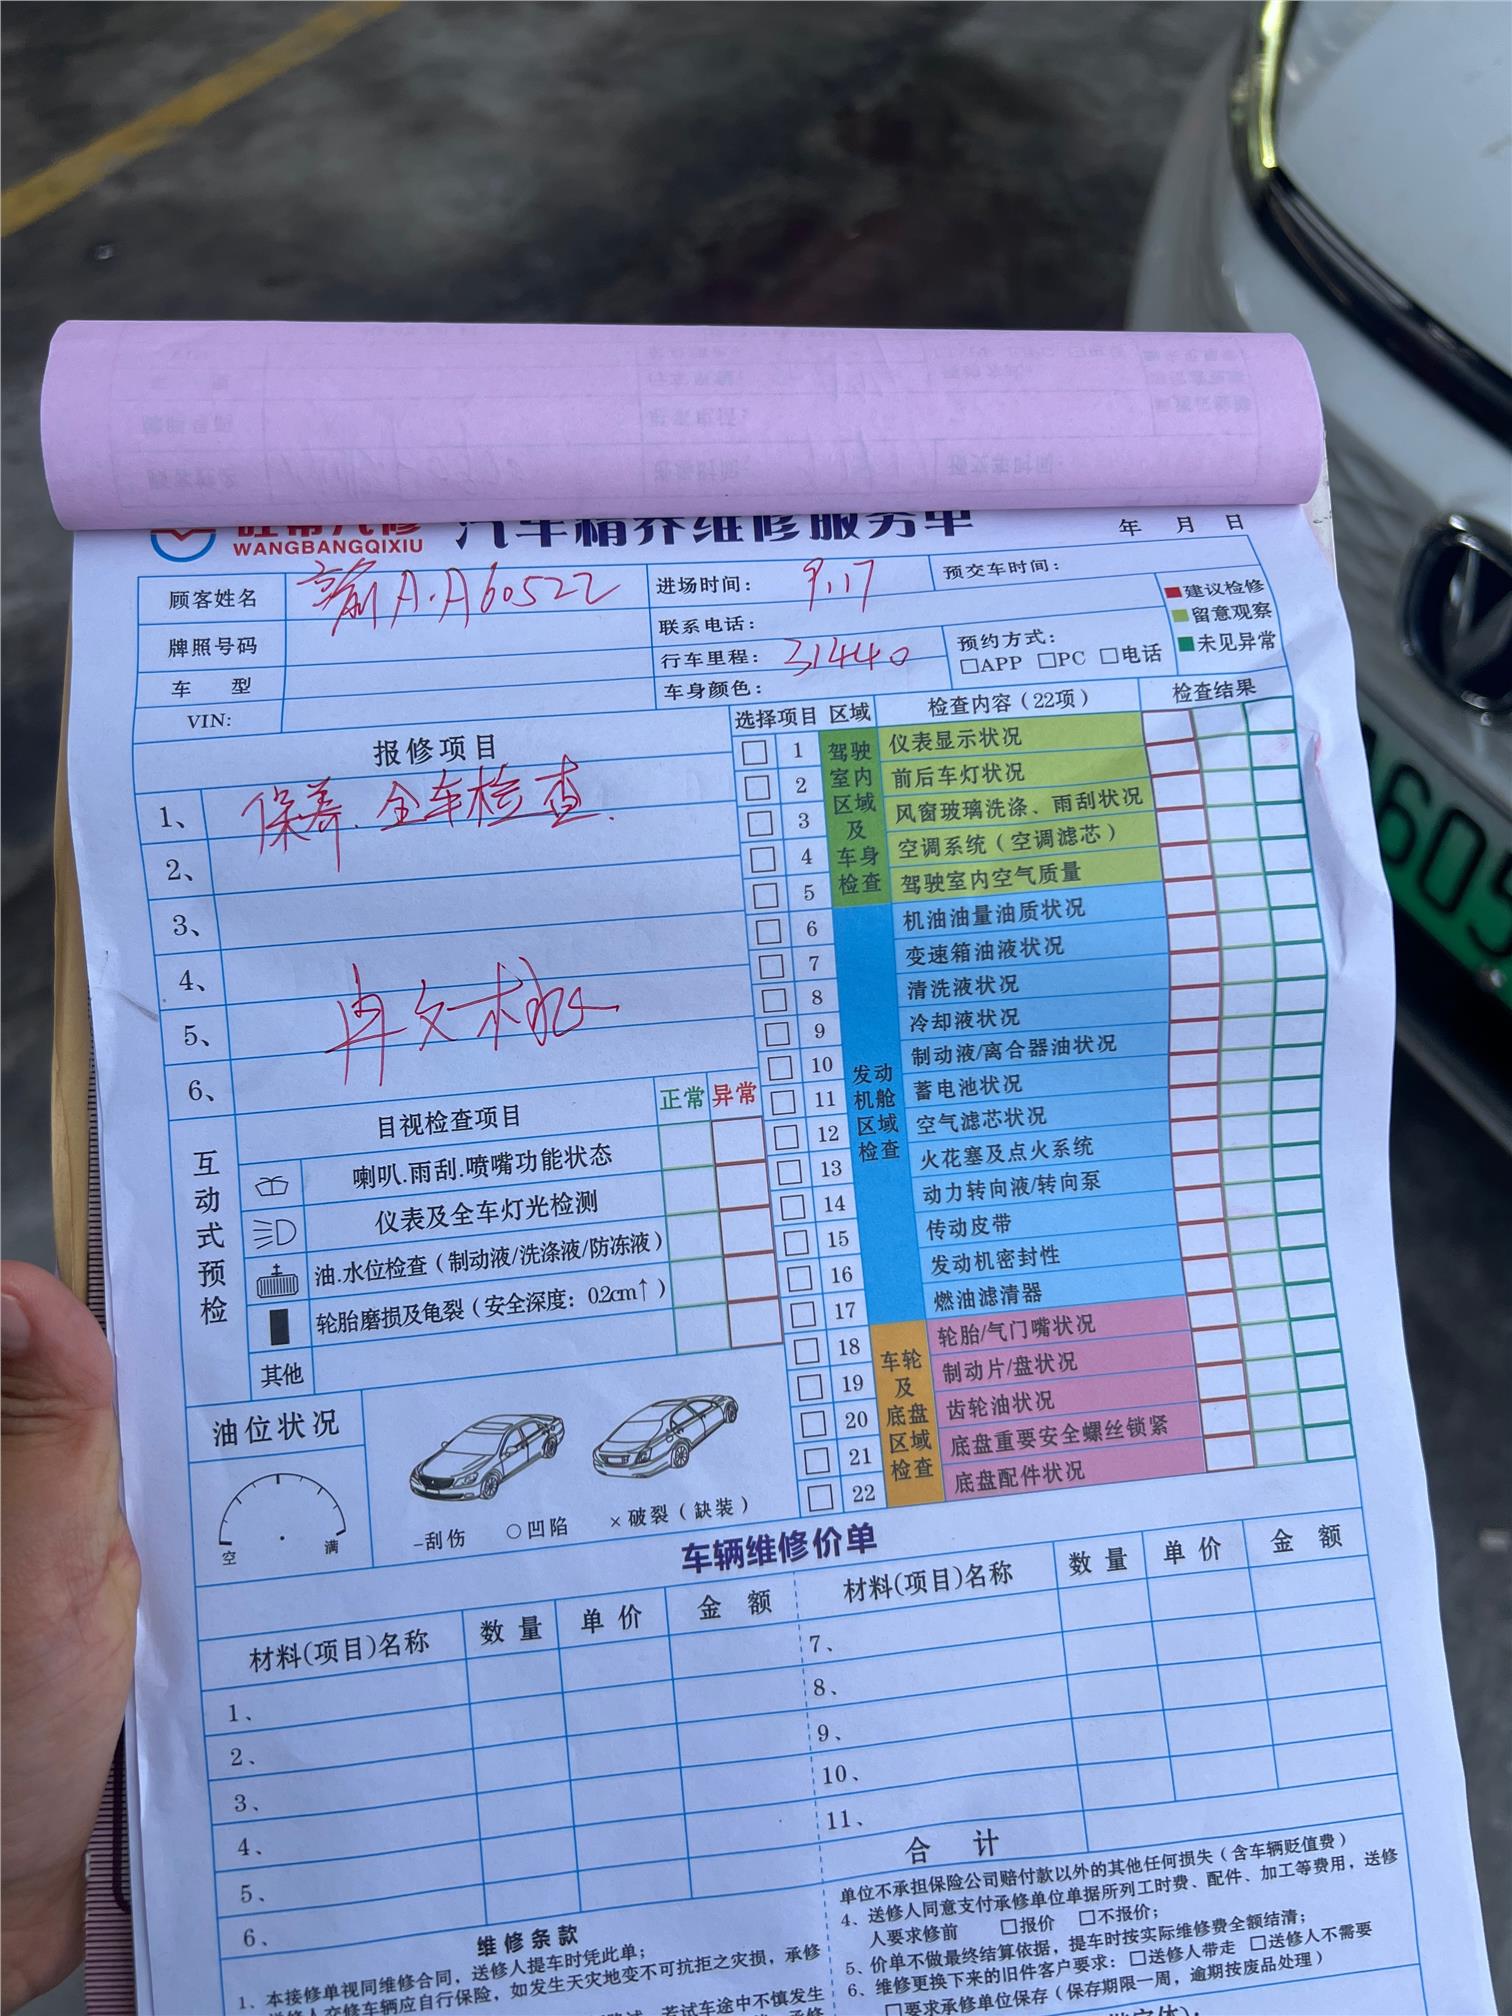 旺帮汽修 汽车精养维修服务单
WANGBANGQIXIU
年 月 日
顾客姓名 A·A60522 进场时间: 9.17 预交车时间:
牌照号码 联系电话:
车 型 行车里程: 31440 预约方式:
□APP □PC □电话
VIN: 车身颜色:
建议检修
留意观察
未见异常
报修项目
1、保养.全车检查.
2、
3、
4、
5、
6、
选择项目 区域 检查内容(22项) 检查结果
驾驶室内区域及车身检查
1 仪表显示状况
2 前后车灯状况
3 风窗玻璃洗涤、雨刮状况
4 空调系统(空调滤芯)
5 驾驶室内空气质量
发动机舱区域检查
6 机油油量油质状况
7 变速箱油液状况
8 清洗液状况
9 冷却液状况
10 制动液/离合器油状况
11 蓄电池状况
12 空气滤芯状况
13 火花塞及点火系统
14 动力转向液/转向泵
15 传动皮带
16 发动机密封性
17 燃油滤清器
车轮及底盘区域检查
18 轮胎/气门嘴状况
19 制动片/盘状况
20 齿轮油状况
21 底盘重要安全螺丝锁紧
22 底盘配件状况
互动式预检
目视检查项目 正常 异常
喇叭.雨刮.喷嘴功能状态
仪表及全车灯光检测
油.水位检查(制动液/洗涤液/防冻液)
轮胎磨损及龟裂(安全深度: 0.2cm↑)
其他
油位状况
空 满
-刮伤 ○凹陷 ×破裂(缺装)
车辆维修价单
材料(项目)名称 数量 单价 金额 材料(项目)名称 数量 单价 金额
1、 7、
2、 8、
3、 9、
4、 10、
5、 11、
6、 合 计
维修条款
1、本接修单视同维修合同，送修人提车时凭此单;
送修人交修车辆应自行保险，如发生天灾地变不可抗拒之灾损，承修
若试车途中不慎发生
单位不承担保险公司赔付款以外的其他任何损失(含车辆贬值费)
4、送修人同意支付承修单位单据所列工时费、配件、加工等费用，送修
人要求修前 □报价 □不报价;
5、价单不做最终结算依据，提车时按实际维修费全额结清;
6、维修更换下来的旧件客户要求: □送修人带走 □送修人不需要
□要求承修单位保存(保存期限一周，逾期按废品处理)